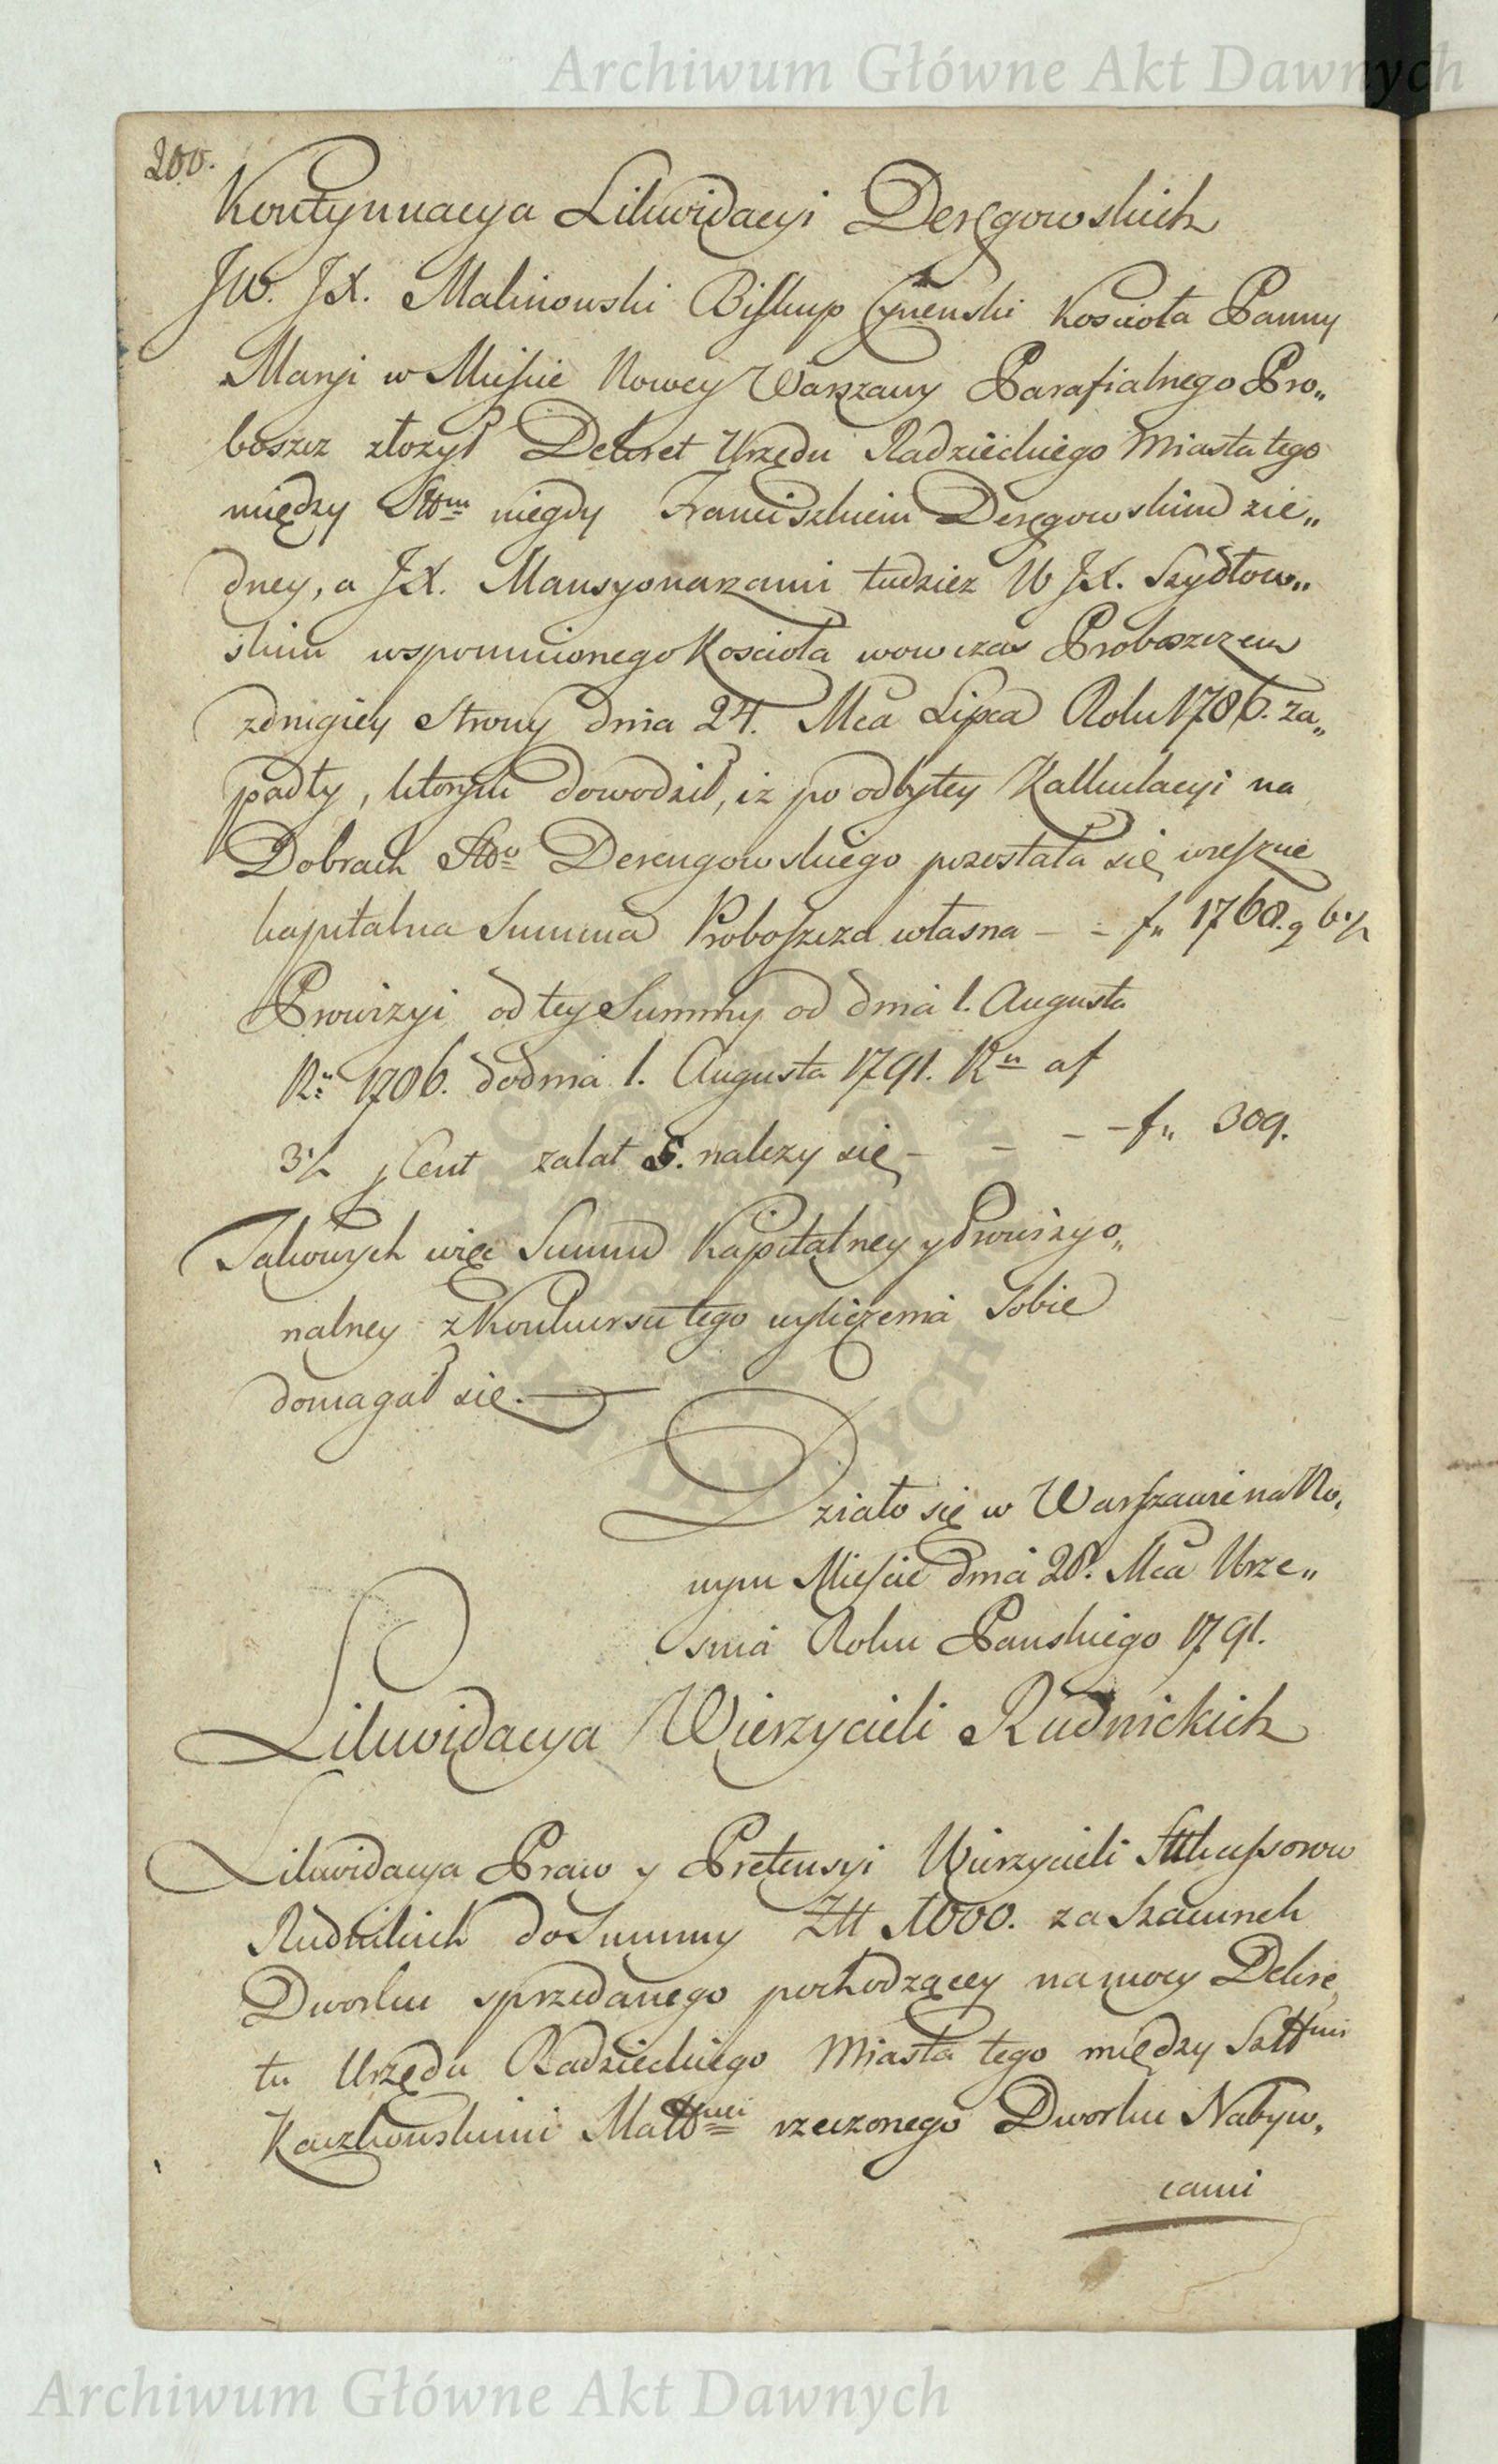 Archiwum Główne Akt Dawnych
200.
Kontynuacya Likwidacyi Deręgowskich
JW. JX. Malinowski Biskup Cynenski Koscioła Panny
Maryi w Mieście Nowey Warszawy Parafialnego Pro„
boszcz złożył Dekret Urzędu Radzieckiego Miasta tego
między Sttm niegdy Franciszkiem Deręgowskim z ie„
dney, a JX. Mansyonarzami tudzież W JX. Szydłow„
skim wspomnionego Kosciola wowczas Proboszczem
z drugiey Strony dnia 24. Mca Lipca Roku 1786. za„
padły, którym dowodził, iż po odbytey Kalkulacyi na
Dobrach Stto Derengowskiego pozostała się ieszcze
kapitalna Summa Proboszcza własna - - f„ 1768. g 6 1/2
Prowizyi od tey Summy od dnia 1. Augusta
Ru 1786. do dnia 1. Augusta 1791. Ru af
3 1/2 p Cent za lat 5. należy się - - - - f„ 309.
Takowych więc Summ Kapitalney y Prowizyo„
nalney z Konkursu tego wyliczenia Sobie
domagał się.
Działo się w Warszawie na No„
wym Mieście dnia 28. Mca Wrze„
snia Roku Panskiego 1791.
Likwidacya Wierzycieli Rudnickich
Likwidacya Praw y Pretensyi Wierzycieli Sttukcessorow
Rudnickich do Summy Ztt 1000. za Szacunek
Dworku sprzedanego pochodzącey na mocy Dekre„
tu Urzędu Radzieckiego Miasta tego między Szttmi
Kaczkowskimi Małttmi rzeczonego Dworku Nabyw„
cami
Archiwum Główne Akt Dawnych